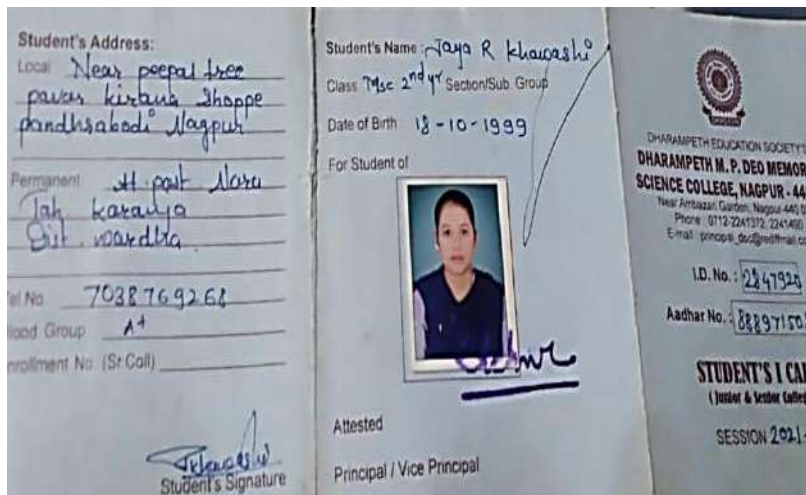 Student's Address:
Local Near peepal tree
pavas kirana Shoppe
pandhrabodi Nagpur
Permanent At. post Nara
Tah karanja
Dist. wardha
Tel No 7038769268
Blood Group A+
Enrollment No. (Sr Coll)
Student's Signature
Student's Name: Jaya R Khawashi
Class Msc 2nd yr Section/Sub. Group
Date of Birth 18-10-1999
For Student of
Attested
Principal / Vice Principal
DHARAMPETH EDUCATION SOCIETY'S
DHARAMPETH M. P. DEO MEMOR
SCIENCE COLLEGE, NAGPUR - 44
Near Ambazari Garden, Nagpur-440
Phone : 0712-2241372, 2241490
E-mail : principal_dsc@rediffmail.co
I.D. No. : 2847920
Aadhar No. : 88897150
STUDENT'S I CA
( Junior & Senior Colleg
SESSION 2021-